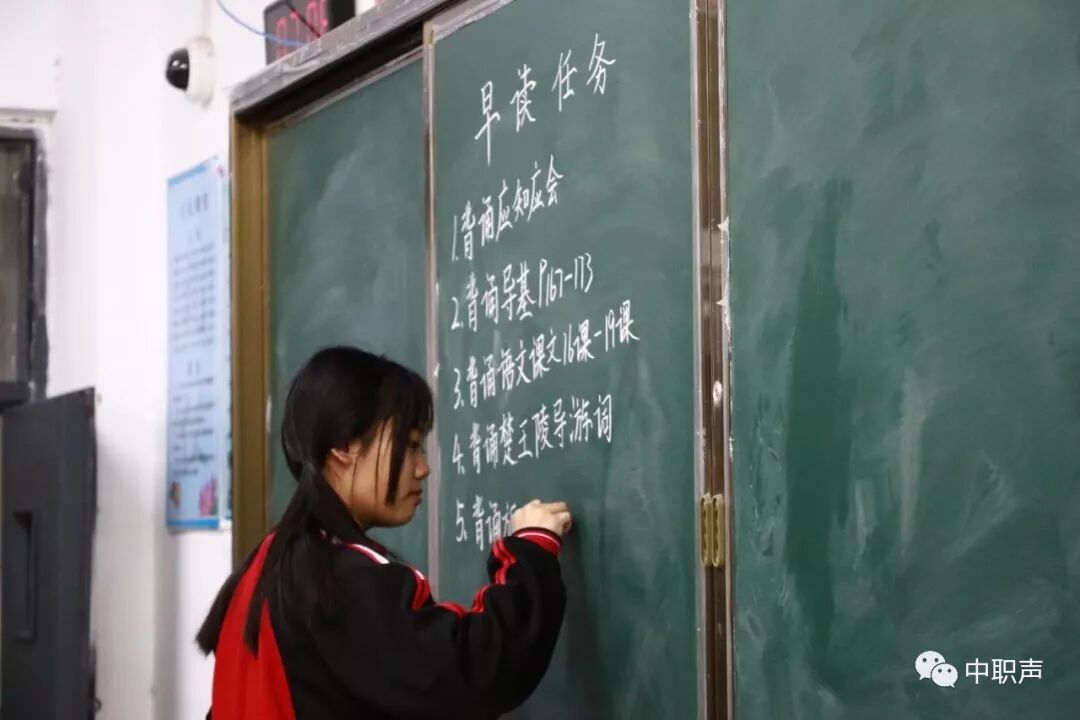 早读任务
1.背诵应知应会
2.背诵导基P167-173
3.背诵语文课文16课-19课
4.背诵楚王陵导游词
5.背诵
中职声